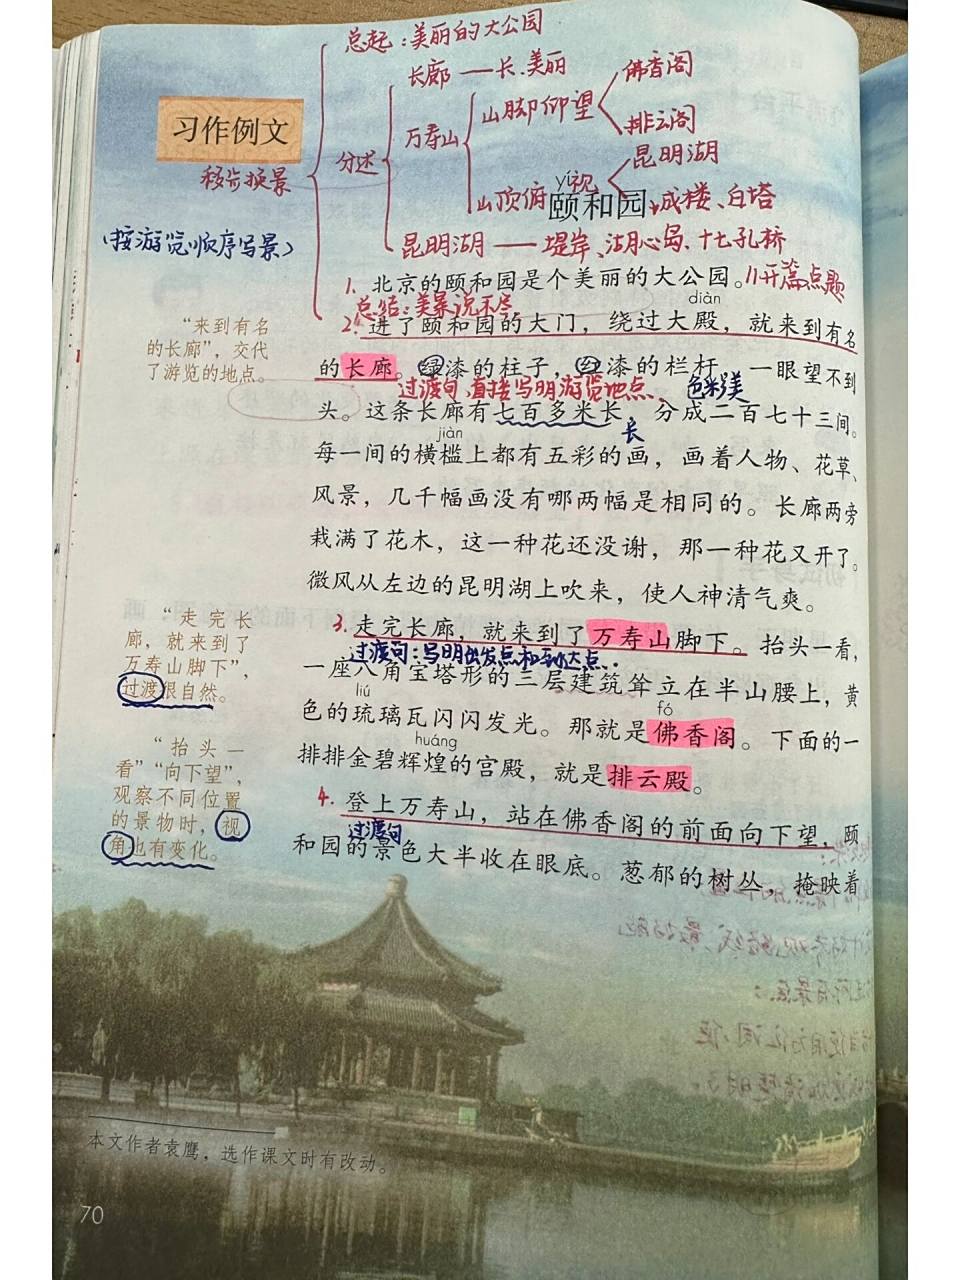 总起：美丽的大公园
长廊 — 长、美丽
佛香阁
习作例文
万寿山
山脚仰望
排云阁
移步换景
分述
昆明湖
yí
山顶俯视
颐和园
城楼、白塔
（按游览顺序写景）
昆明湖 — 堤岸、湖心岛、十七孔桥
1. 北京的颐和园是个美丽的大公园。//开篇点题
总结：美景说不尽
diàn
2. 进了颐和园的大门，绕过大殿，就来到有名
的长廊。绿漆的柱子，红漆的栏杆，一眼望不到
过渡句，直接写明游览地点、
色彩美
头。这条长廊有七百多米长，分成二百七十三间。
长
jiàn
每一间的横槛上都有五彩的画，画着人物、花草、
风景，几千幅画没有哪两幅是相同的。长廊两旁
栽满了花木，这一种花还没谢，那一种花又开了。
微风从左边的昆明湖上吹来，使人神清气爽。
3. 走完长廊，就来到了万寿山脚下。抬头一看，
过渡句：写明出发点和到达点．．
一座八角宝塔形的三层建筑耸立在半山腰上，黄
liú
fó
色的琉璃瓦闪闪发光。那就是佛香阁。下面的一
huáng
排排金碧辉煌的宫殿，就是排云殿。
4. 登上万寿山，站在佛香阁的前面向下望，颐
过渡句
和园的景色大半收在眼底。葱郁的树丛，掩映着
“来到有名
的长廊”，交代
了游览的地点。
“走完长
廊，就来到了
万寿山脚下”，
过渡很自然。
“抬头一
看”“向下望”，
观察不同位置
的景物时，视
角也有变化。
本文作者袁鹰，选作课文时有改动。
70